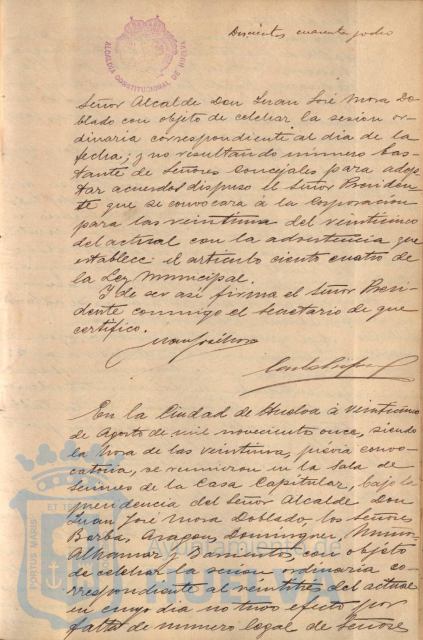 Doscientos cuarenta y ocho
ALCALDIA CONSTITUCIONAL DE HUELVA
Señor Alcalde Don Juan José Mora Do-
blado con objeto de celebrar la sesión or-
dinaria correspondiente al dia de la
fecha; y no resultando número bas-
tante de Señores Concejales para adop-
tar acuerdos dispuso el Señor Presiden-
te que se convocara á la Corporación
para las veintiuna del veinticinco
del actual con la advertencia que
establece el artículo ciento cuatro de
la Ley Municipal.
Y de ser así firma el Señor Presi-
dente conmigo el Secretario de que
certifico.
Juan José Mora
En la Ciudad de Huelva á veinticinco
de Agosto de mil novecientos once, siendo
la hora de las veintiuna, prévia convo-
catoria, se reunieron en la Sala de
Sesiones de la Casa Capitular, bajo la
presidencia del Señor Alcalde Don
Juan José Mora Doblado, los Señores
Barba, Aragon, Dominguez, Muñoz,
Alhamar y con objeto
de celebrar la sesion ordinaria co-
rrespondiente al veintitres del actual
en cuyo dia no tuvo efecto por
falta de número legal de Señore
PORTUS MARIS ET TE
Ayuntamiento de
HUELVA